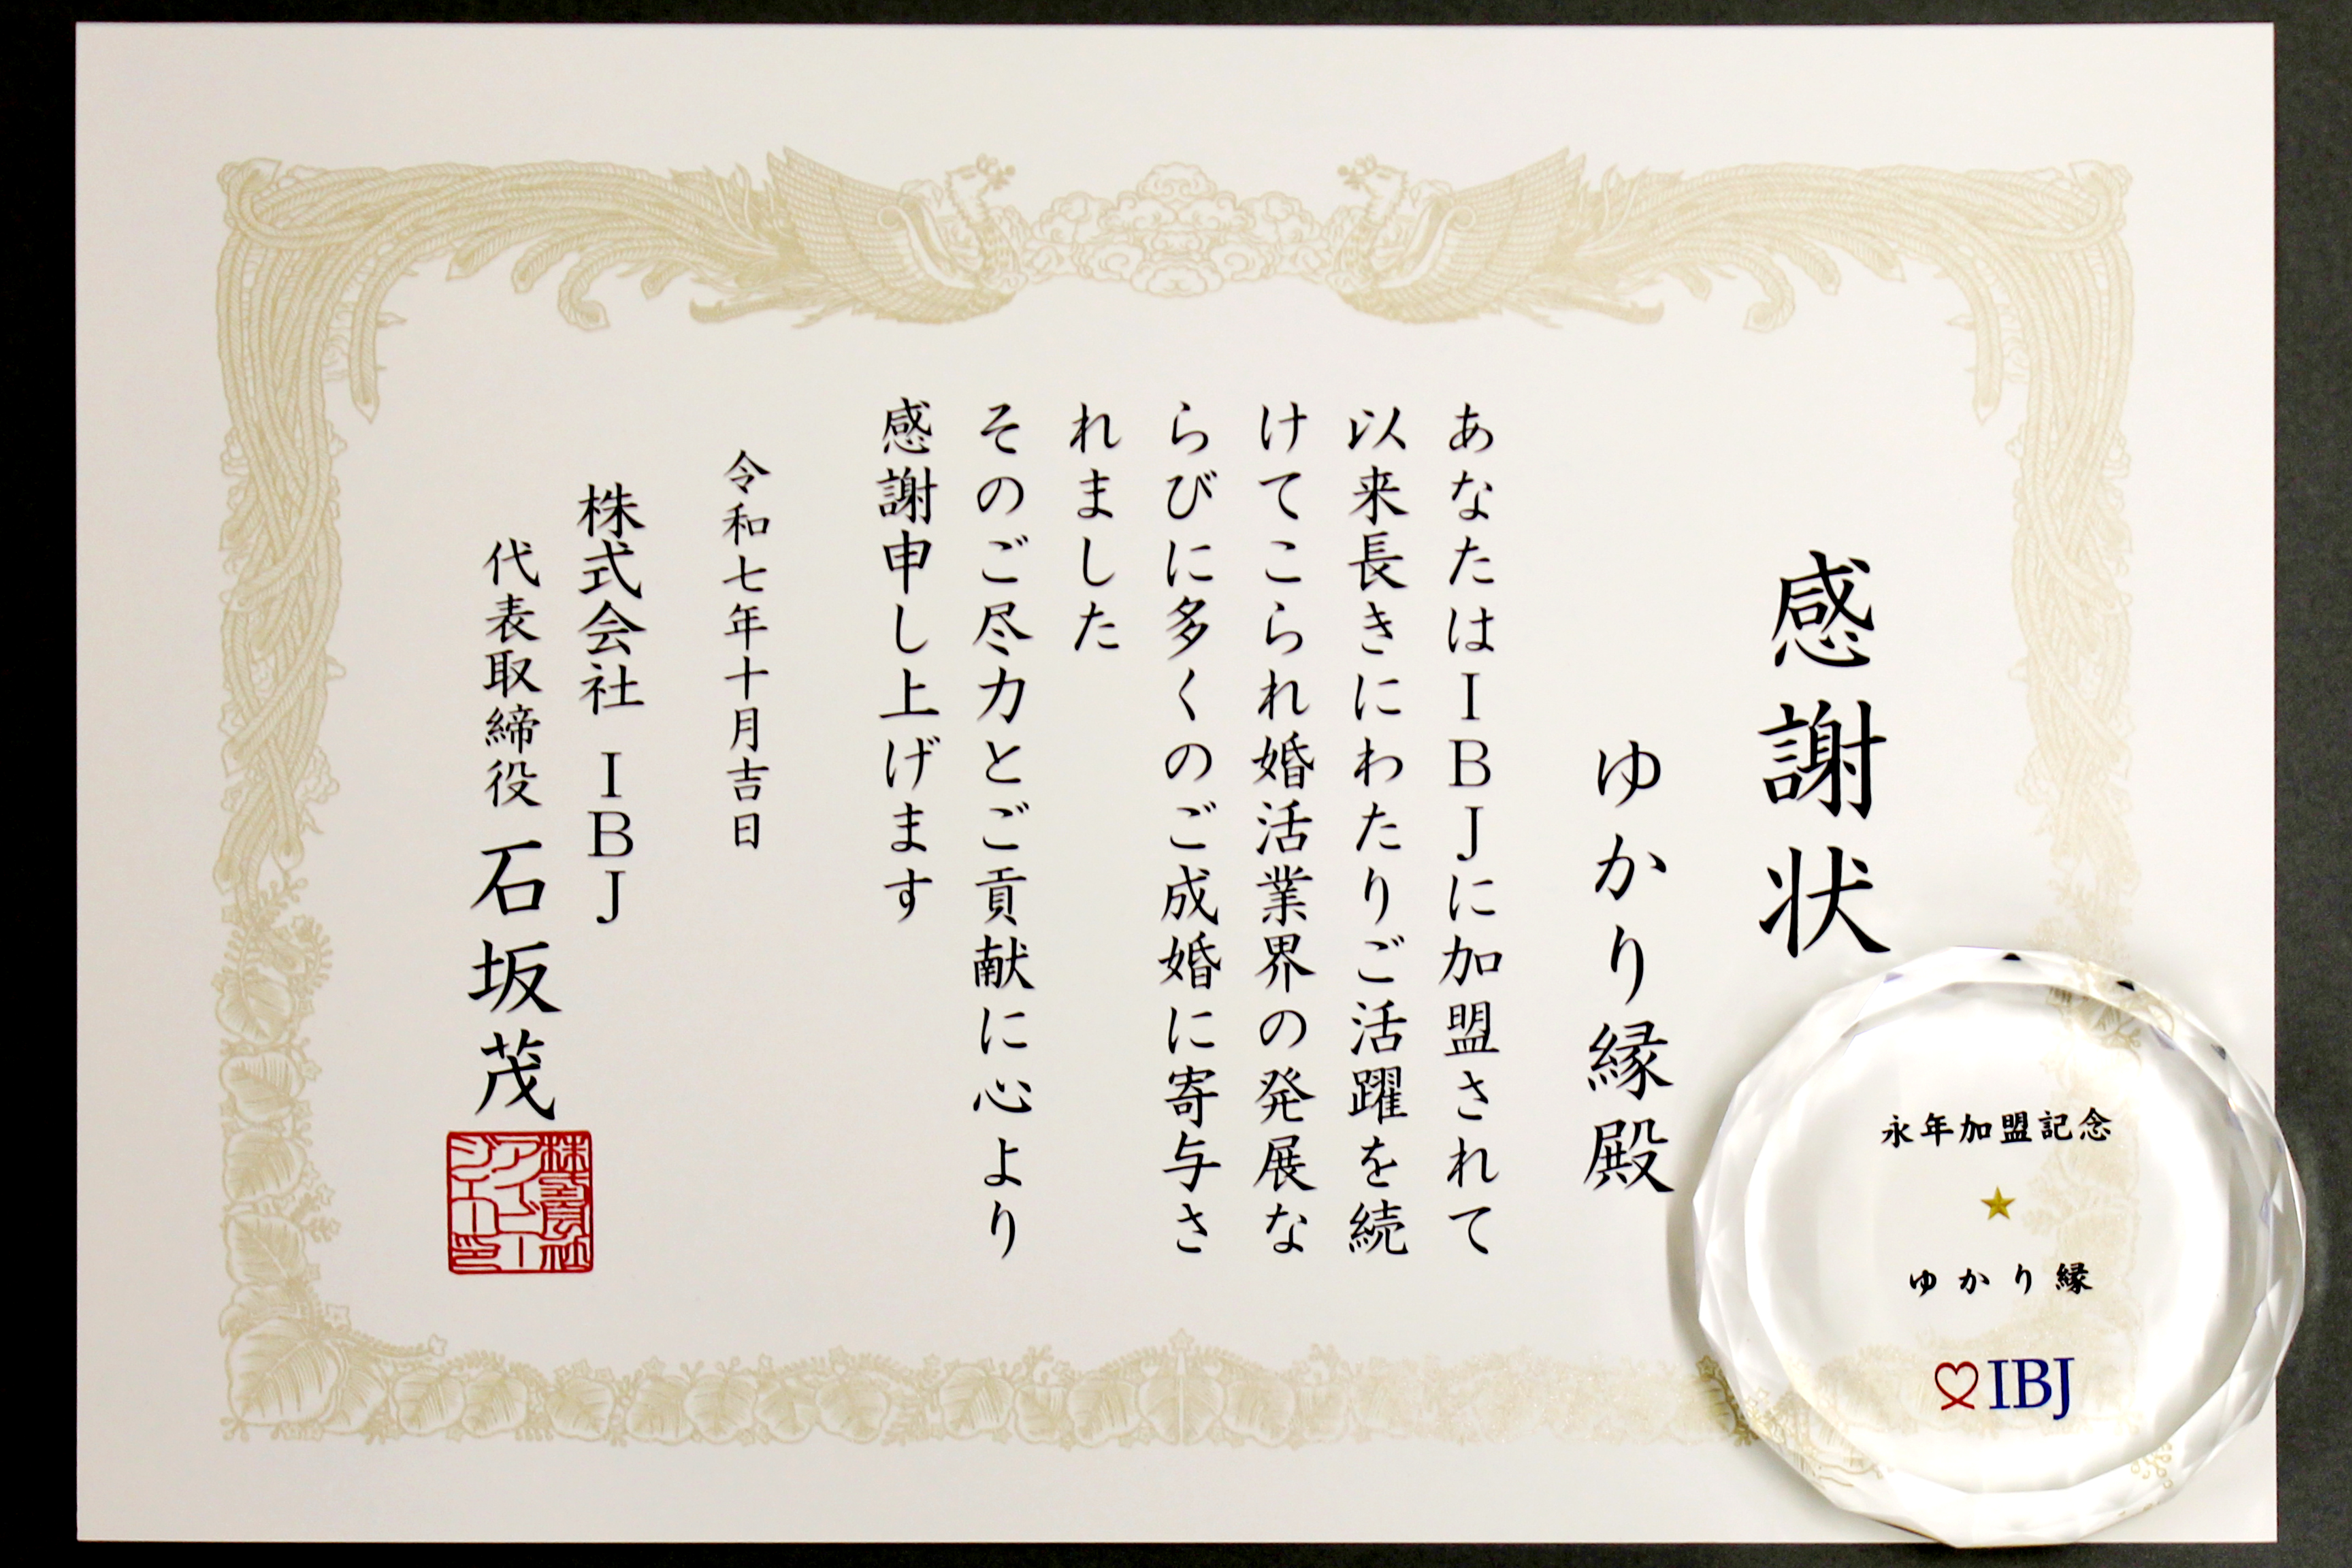 感謝状
ゆかり縁殿
あなたはIBJに加盟されて
以来長きにわたりご活躍を続
けてこられ婚活業界の発展な
らびに多くのご成婚に寄与さ
れました
そのご尽力とご貢献に心より
感謝申し上げます
令和七年十月吉日
株式会社 IBJ
代表取締役 石坂茂
株式会社
アイビー
ジェー印
永年加盟記念
ゆかり縁
IBJ